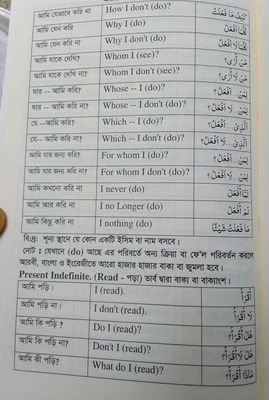 আমি যেভাবে করি না How I don't (do)? كَيْفَ مَا فَعَلْتُ
আমি যেন করি Why I (do) كَيْ أَفْعَلَ
আমি যেন করি না Why I don't (do) كَيْ لَا أَفْعَلَ
আমি যাকে দেখি? Whom I (see)? مَنْ أَرَى؟
আমি যাকে দেখি না? Whom I don't (see)? مَنْ لَا أَرَى؟
যার -- আমি করি? Whose -- I (do)? لِمَنْ أَفْعَلُ؟
যার -- আমি করি না? Whose -- I don't (do)? لِمَنْ لَا أَفْعَلُ؟
যে --আমি করি? Which -- I (do)? الَّذِيْ أَفْعَلُ؟
যে-- আমি করি না? Which -- I don't (do)? الَّذِيْ لَا أَفْعَلُ؟
আমি যার জন্য করি? For whom I (do)? لِمَنْ أَفْعَلُ؟
আমি যার জন্য করি না? For whom I don't (do)? لِمَنْ لَا أَفْعَلُ؟
আমি কখনো করি না I never (do)
আমি আর করি না I no Longer (do)
আমি কিছু করি না I nothing (do)
বিঃদ্রঃ শূন্য স্থানে যে কোন একটি ইসিম বা নাম বসবে।
নোট : যেখানে (do) আছে এর পরিবর্তে অন্য ক্রিয়া বা ফে'ল পরিবর্তন করলে
আরবী, বাংলা ও ইংরেজীতে আরো হাজার হাজার বাক্য বা জুমলা হবে।
Present Indefinite. (Read - পড়া) দ্বারা বাক্য বা বাক্যাংশ।
আমি পড়ি। I (read). أَقْرَأُ
আমি পড়ি না। I don't (read). لَا أَقْرَأُ
আমি কি পড়ি ? Do I (read)? هَلْ أَقْرَأُ؟
আমি কি পড়ি না? Don't I (read)? هَلْ لَا أَقْرَأُ؟
আমি কী পড়ি? What do I (read)? مَاذَا أَقْرَأُ؟